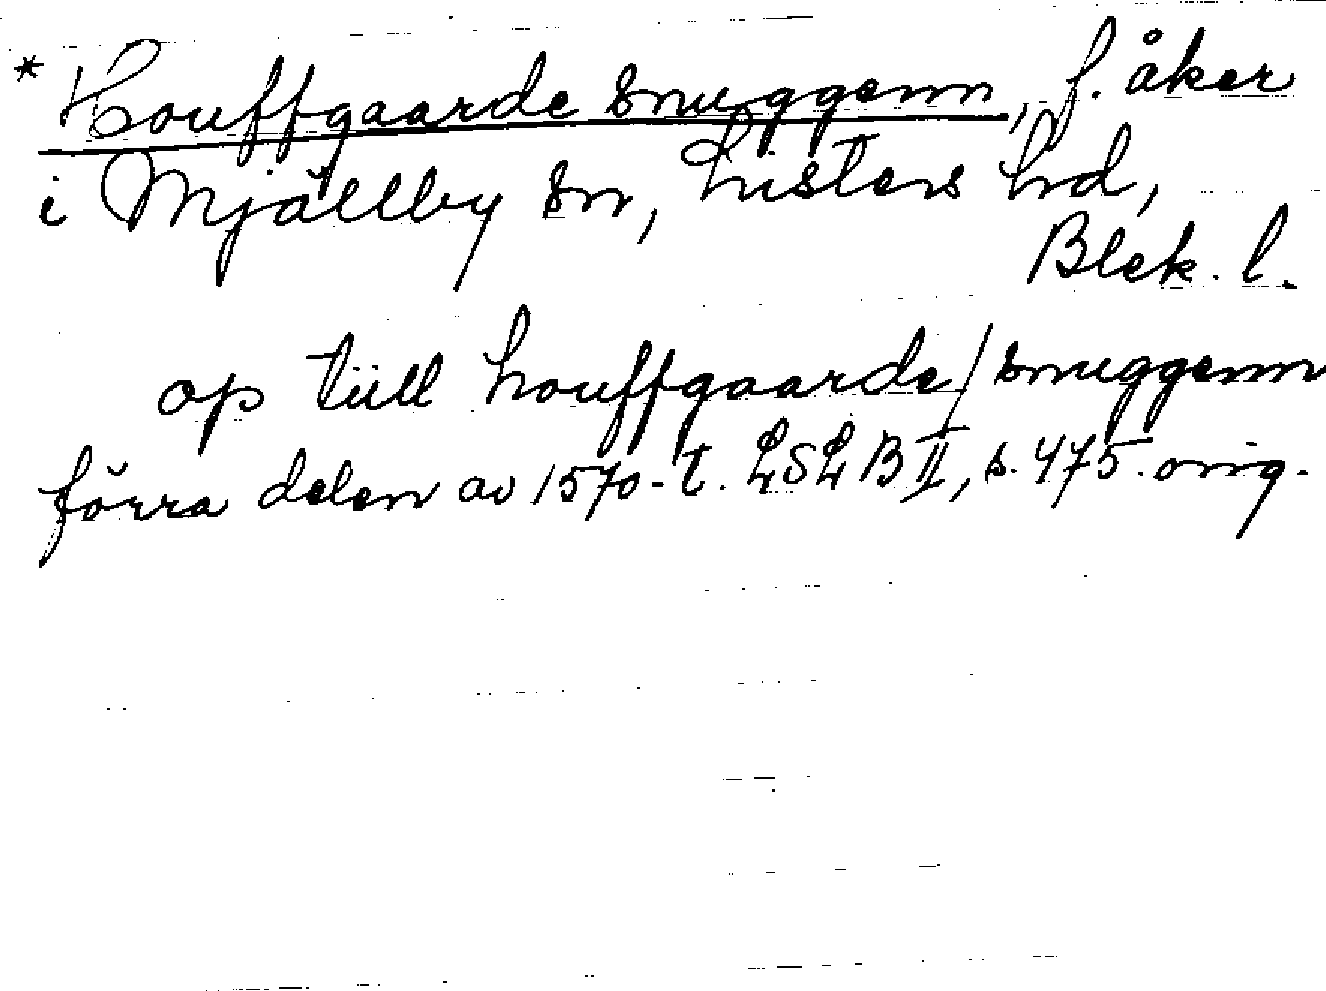 * Houffgaarde snuggenn, f. åker
i Mjällby sn, Listers hd,
Blek. l.
op tiill houffgaarde/snuggenn
förra delen av 1570-t. LSLB II, s. 475. orig.